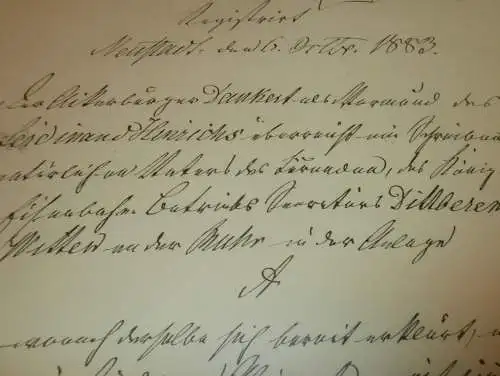 Registrirt
Neustadt, den 6. Octbr. 1883.
Der Ackerbürger Dankert als Vormund des
Ferdinand Hinrichs überreicht ein Schreiben
natürlichen Vaters des Curanden, des König
Eisenbahn Betriebs Secretärs
Witten an der Ruhr in der Anlage
A
wonach derselbe sich bereit erklärt,